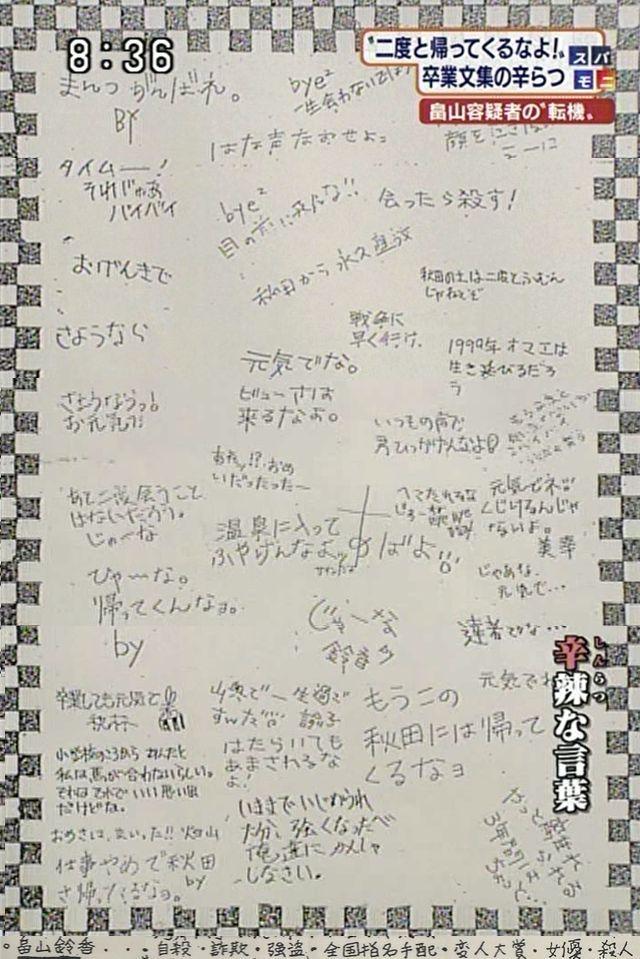 8:36
"二度と帰ってくるなよ!"
卒業文集の辛らつ
スパモニ
畠山容疑者の"転機"
まんつがんばれ。
BY
bye²
一生会わないでしょう
はな声なおせよ。
タイムー!
それじゃあ
バイバイ
bye²
目の前に現れんな!!
会ったら殺す!
おげんきで
秋田から永久追放
秋田の土は二度とふむん
じゃねえぞ
さようなら
戦争に
早く行け。
1999年オマエは
生き延びるだろ
う
元気でな。
ビューさは
来るなよ。
さようなうっ!
お元気で
いつもの声で
男ひっかけんなよ
あと二度と会うこと
はないだろう。
じゃーな
温泉に入って
ふやけんなよッ
あばよ
元気でネ!!
くじけるんじゃ
ないよ。
美幸
ひゃーな。
帰ってくんなョ。
by
じゃーな
鈴香
じゃあな
元気で...
達者でな...
元気でね
卒業しても元気で
秋林
山奥で一生過ご
すんだ
はたらいても
あまされるな
よ!
もうこの
秋田には帰って
くるなョ
小学校のころから
私は馬が合わないらしい。
それはそれでいい思い出
だけどな。
いままでいじめられ
た分、強くなったべ
俺達にかんしゃ
しなさい。
仕事やめで秋田
さ帰ってくるなョ。
by
やっと卒業
3年間
しんらつ
辛辣な言葉
。畠山鈴香・・・自殺・詐欺・強盗・全国指名手配・変人大賞・女優・殺人